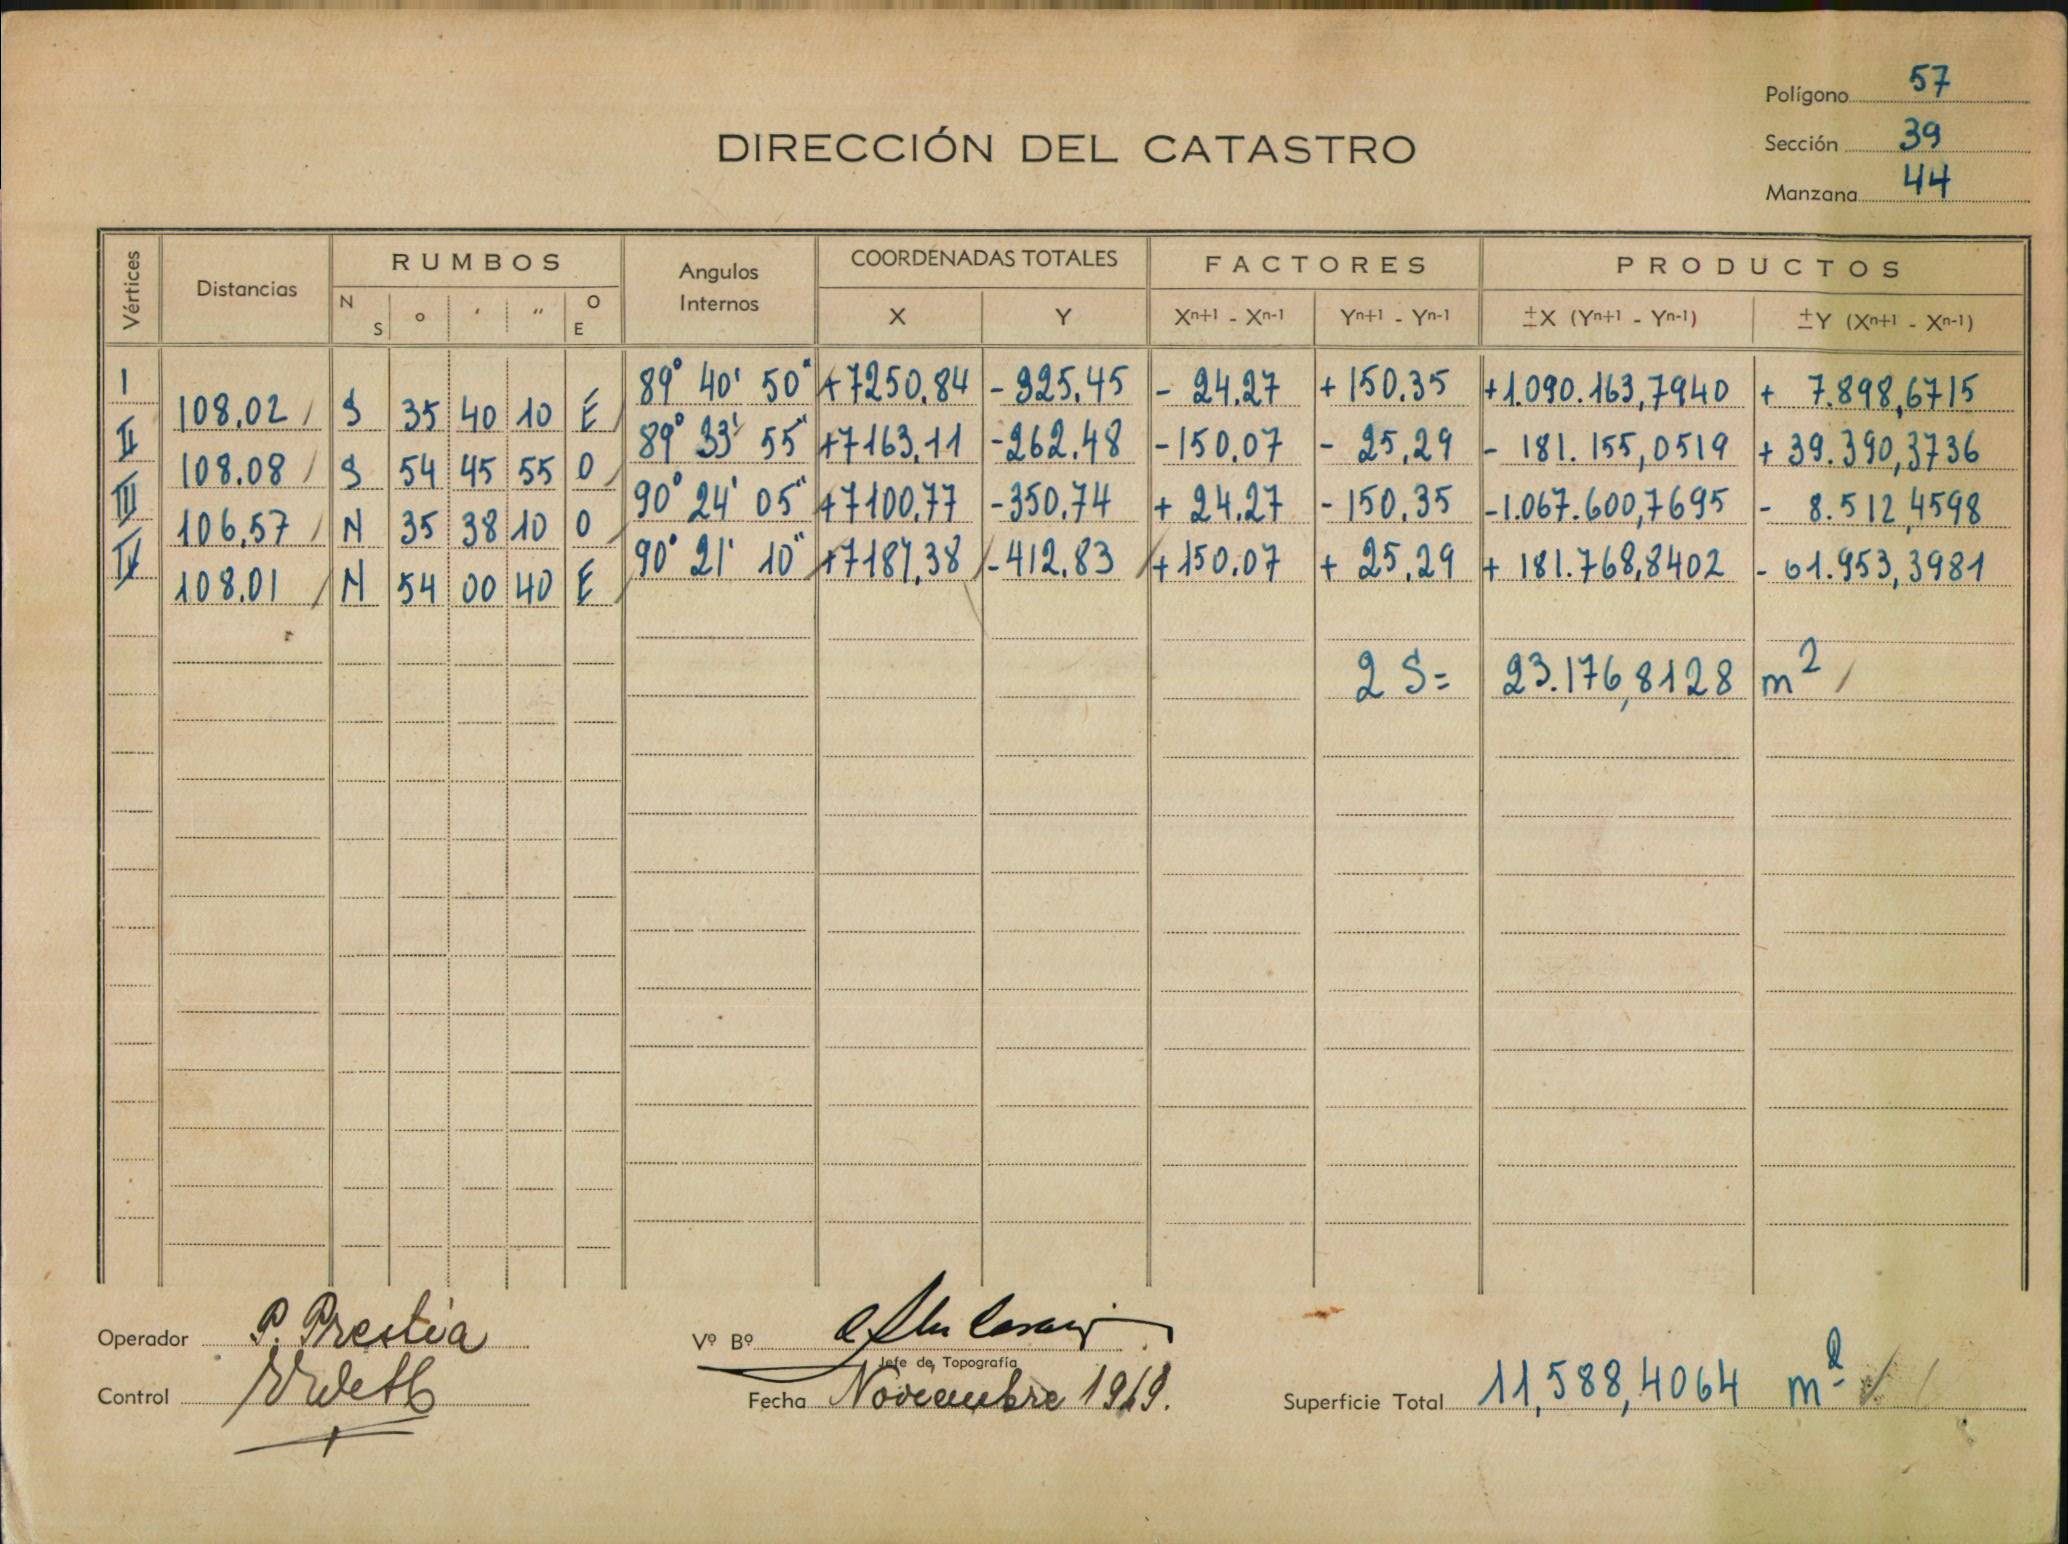 Polígono 57
DIRECCIÓN DEL CATASTRO
Sección 39
Manzana 44
Vértices Distancias RUMBOS Angulos Internos COORDENADAS TOTALES FACTORES PRODUCTOS
N S ° ' " O E X Y Xn+1 - Xn-1 Yn+1 - Yn-1 ±X (Yn+1 - Yn-1) ±Y (Xn+1 - Xn-1)
I 89° 40' 50" +7250.84 -325.45 - 24.27 + 150.35 +1.090.163,7940 + 7.898,6715
108.02 S 35 40 10 E
II 89° 33' 55" +7163.11 -262.48 -150.07 - 25.29 - 181.155,0519 + 39.390,3736
108.08 S 54 45 55 O
III 90° 24' 05" +7100.77 -350.74 + 24.27 - 150.35 -1.067.600,7695 - 8.512,4598
106.57 N 35 38 10 O
IV 90° 21' 10" +7187.38 -412.83 +150.07 + 25.29 + 181.768,8402 - 61.953,3981
108.01 N 54 00 40 E
2 S= 23.176,8128 m2
Operador P. Prestia
Vº Bº
Jefe de Topografía
Control
Fecha Noviembre 1969.
Superficie Total 11,588,4064 m2